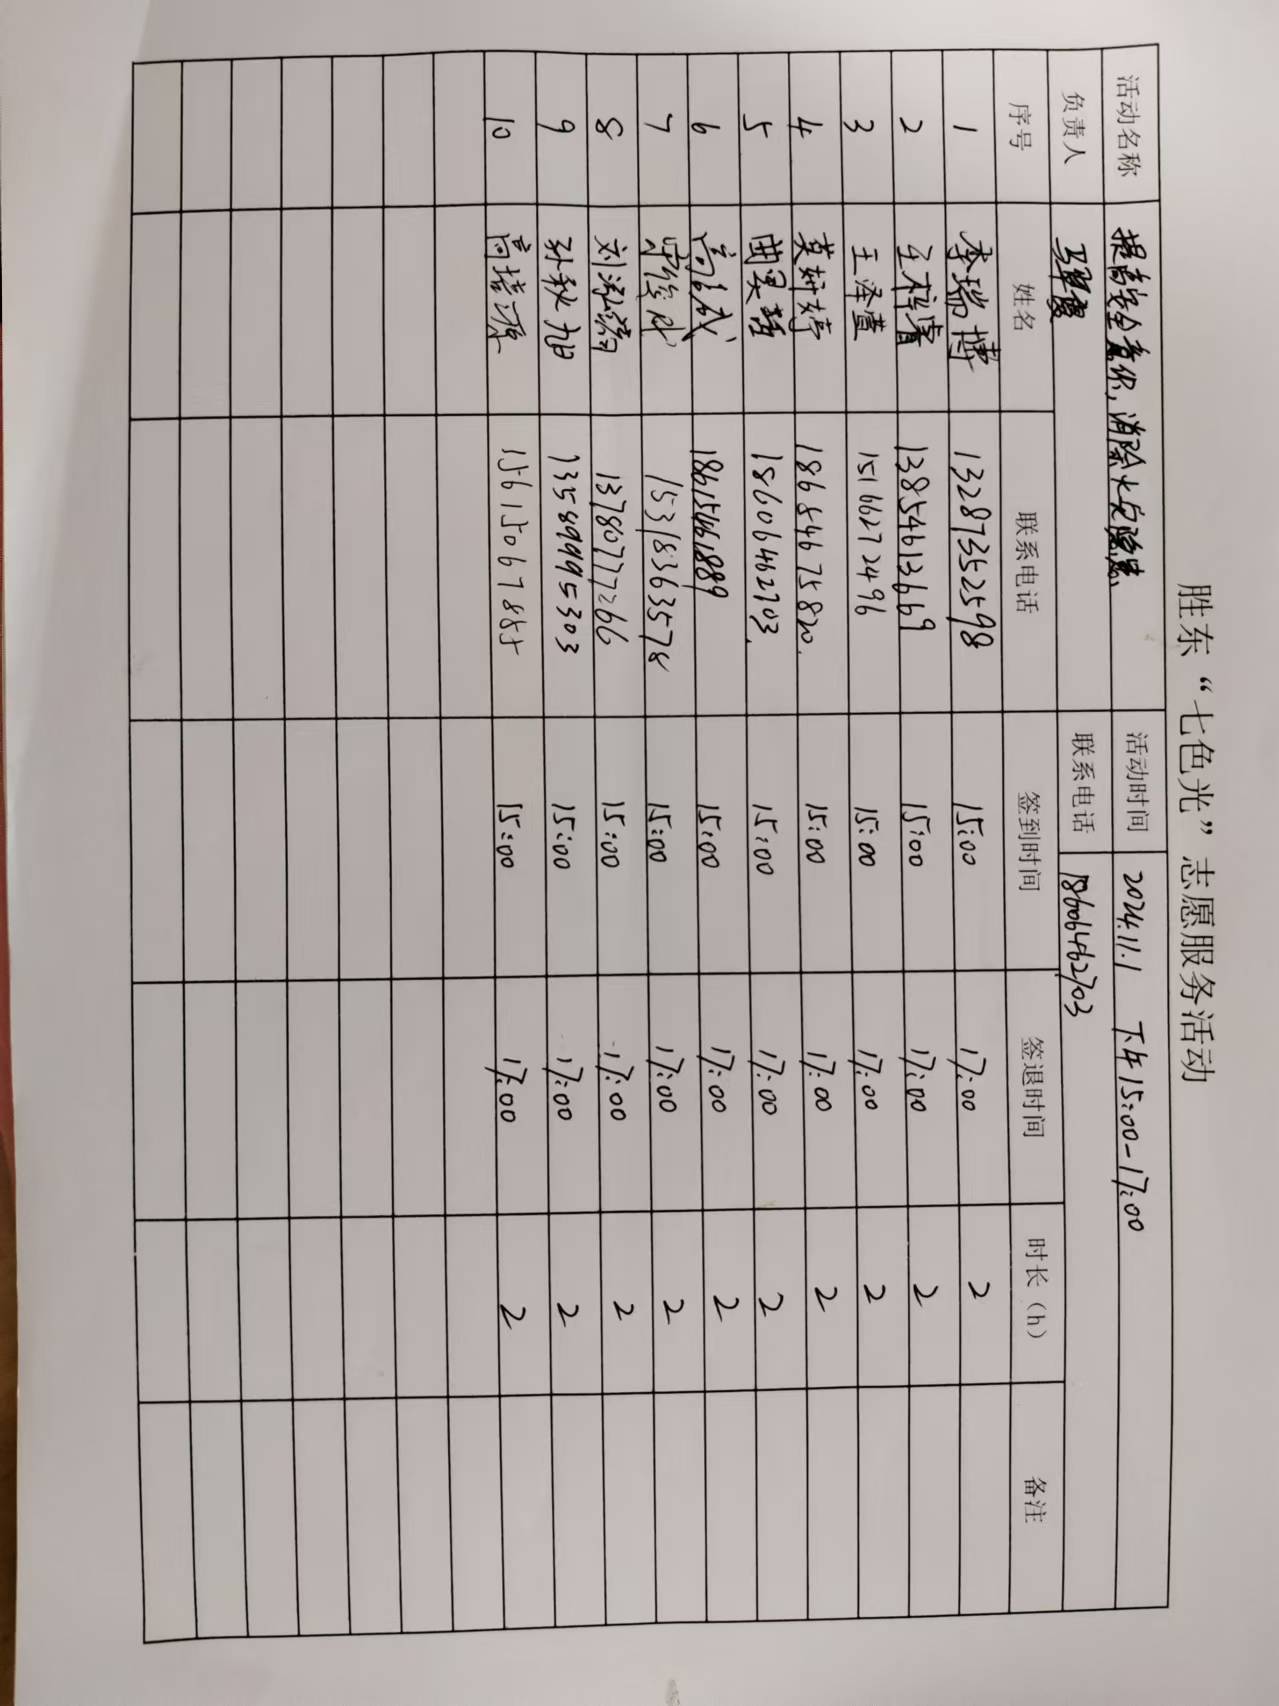 胜东“七色光”志愿服务活动
活动名称 提高安全意识，消除火灾隐患 活动时间 2024.11.1 下午15:00-17:00
负责人 联系电话 18606462703
序号 姓名 联系电话 签到时间 签退时间 时长（h） 备注
1 李瑞博 13287352598 15:00 17:00 2
2 王梓睿 13854613669 15:00 17:00 2
3 王泽萱 15166272496 15:00 17:00 2
4 莫妍婷 18654675820 15:00 17:00 2
5 曲昊 18606462703 15:00 17:00 2
6 18615461889 15:00 17:00 2
7 15318363578 15:00 17:00 2
8 刘泓 13780777266 15:00 17:00 2
9 孙秋旭 13589995303 15:00 17:00 2
10 高培源 15615067885 15:00 17:00 2